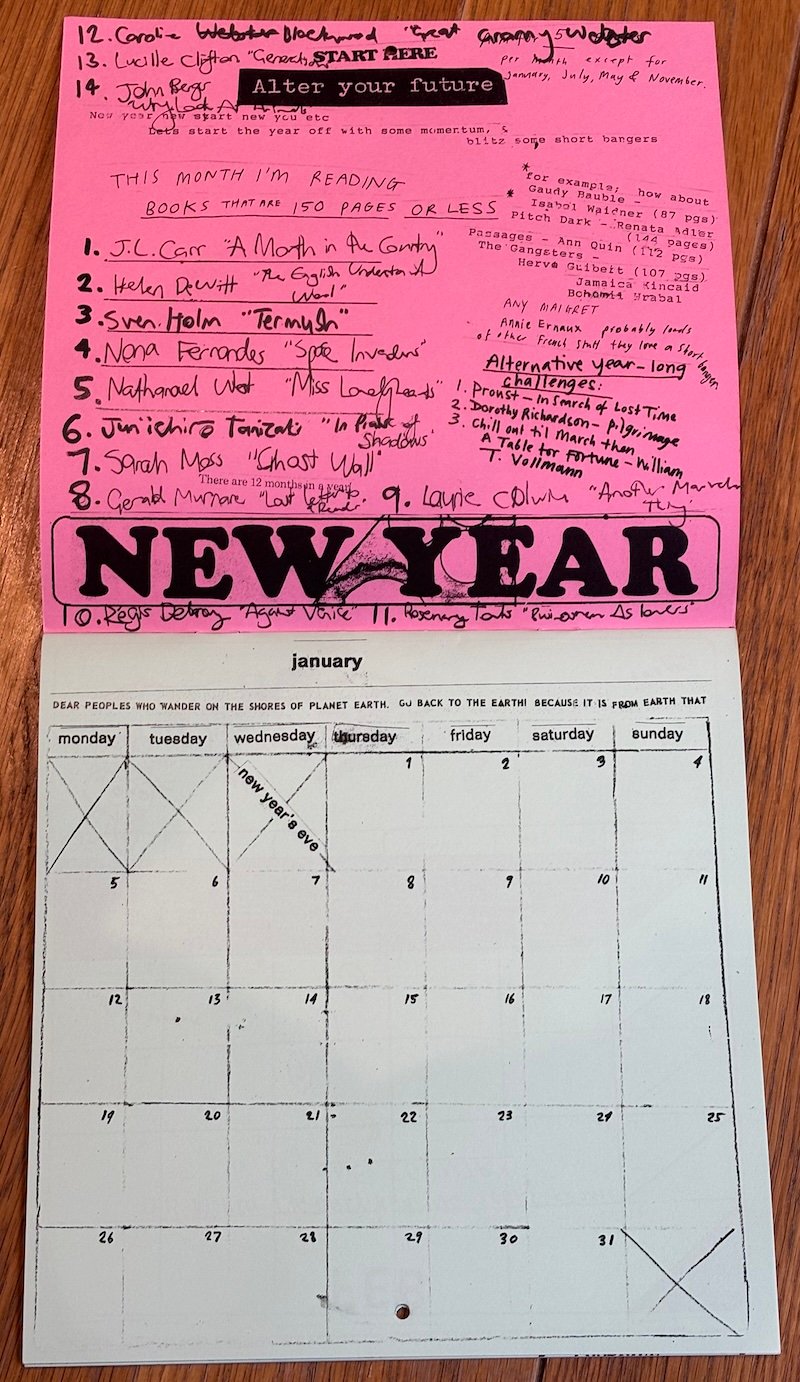 12. Caroline Webster Blackwood "Great Granny Webster
START HERE
13. Lucille Clifton "Generations"
per month except for
January, July, May & November.
14. John Berger
Alter your future
"Why Look At Animals"
New year new start new you etc
Lets start the year off with some momentum, &
blitz some short bangers
THIS MONTH I'M READING
BOOKS THAT ARE 150 PAGES OR LESS
*
* for example; how about
Gaudy Bauble -
Isabel Waidner (87 pgs)
Pitch Dark - Renata Adler
(144 pages)
Passages - Ann Quin (112 pgs)
The Gangsters -
Herve Guibert (107 pgs)
Jamaica Kincaid
Bohumil Hrabal
ANY MAIGRET
Annie Ernaux probably loads
of other French stuff they love a short banger
1. J.L. Carr "A Month in the Country"
2. Helen DeWitt "The English Understand
Wool"
3. Sven Holm "Termush"
4. Nona Fernandes "Space Invaders"
5. Nathanael West "Miss Lonelyhearts"
6. Jun'ichiro Tanizaki "In Praise of
Shadows"
7. Sarah Moss "Ghost Wall"
There are 12 months in a year
8. Gerald Murnane "Last Letter to
a Reader"
9. Laurie Colwin "Another Marvellous
Thing"
Alternative year-long
challenges:
1. Proust - In Search of Lost Time
2. Dorothy Richardson - Pilgrimage
3. Chill out til March then
A Table for Fortune - William
T. Vollmann
NEW YEAR
10. Régis Debray "Against Venice"
11. Rosemary Tonks "Businessmen As Lovers"
january
DEAR PEOPLES WHO WANDER ON THE SHORES OF PLANET EARTH. GO BACK TO THE EARTH! BECAUSE IT IS FROM EARTH THAT
monday tuesday wednesday thursday friday saturday sunday
new year's eve
1 2 3 4
5 6 7 8 9 10 11
12 13 14 15 16 17 18
19 20 21 22 23 24 25
26 27 28 29 30 31